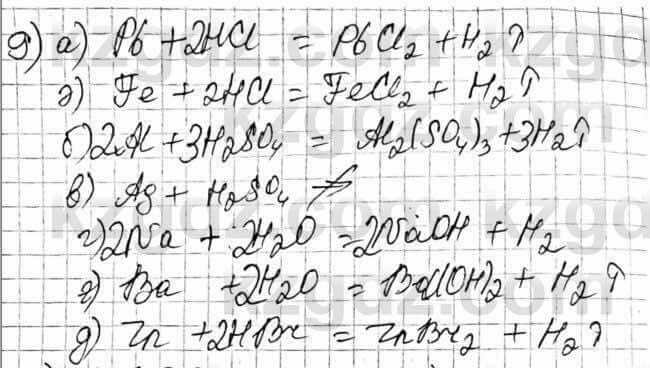 9) а) Pb + 2HCl = PbCl₂ + H₂↑
д) Fe + 2HCl = FeCl₂ + H₂↑
б) 2Al + 3H₂SO₄ = Al₂(SO₄)₃ + 3H₂↑
в) Ag + H₂SO₄ ≠
г) 2Na + 2H₂O = 2NaOH + H₂
г) Ba + 2H₂O = Ba(OH)₂ + H₂↑
д) Zn + 2HBr = ZnBr₂ + H₂↑